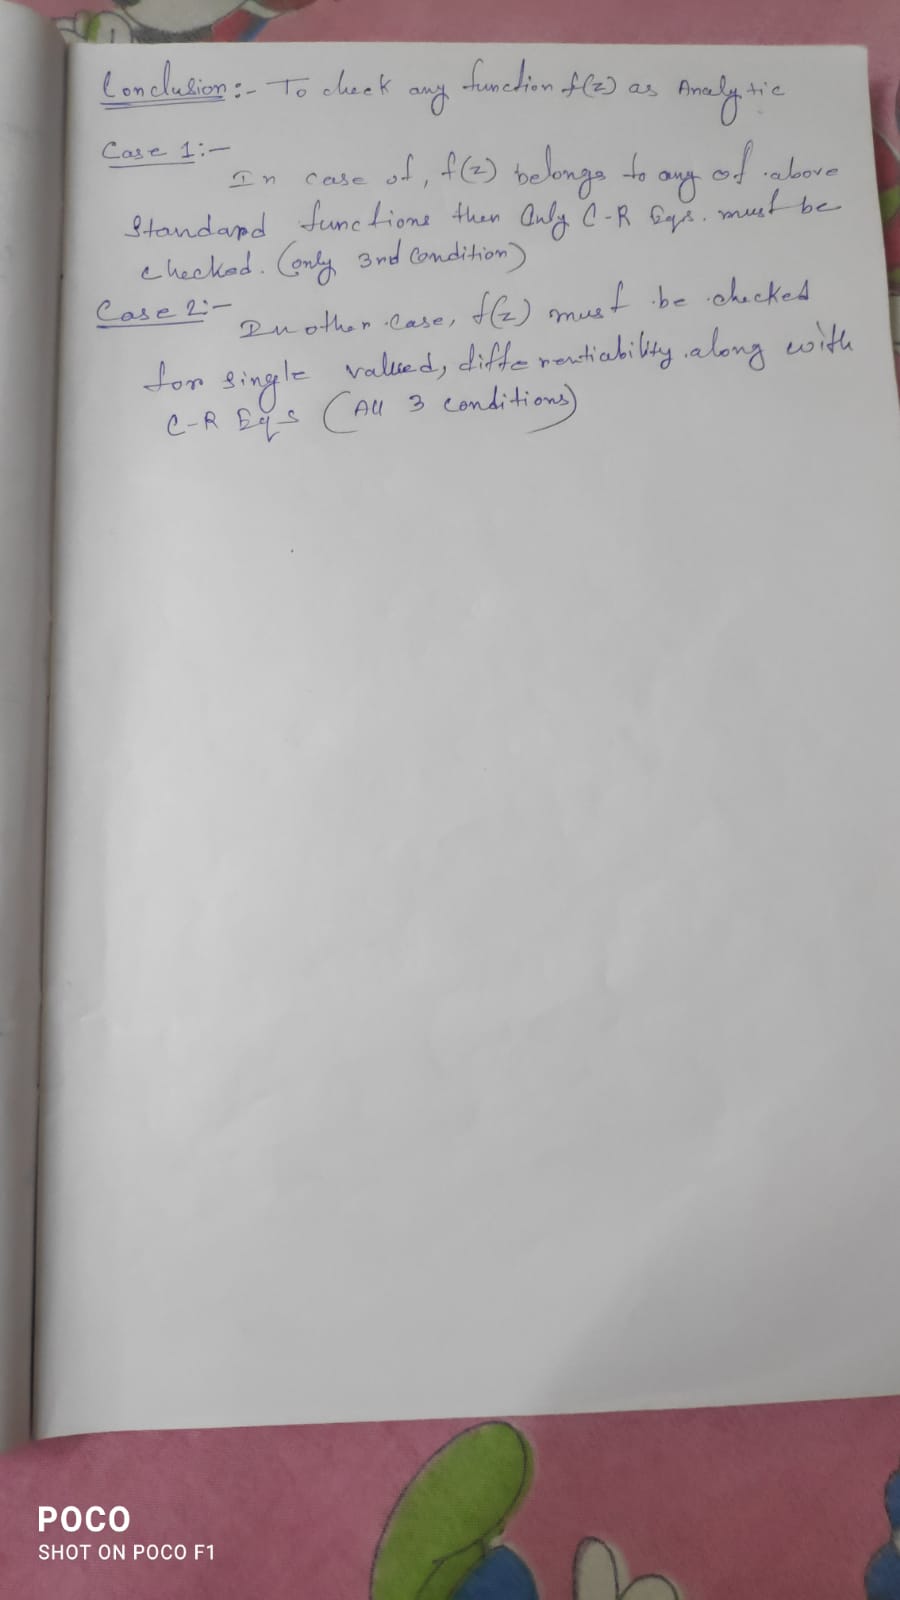 Conclusion:- To check any function f(z) as Analytic
Case 1:-
In case of, f(z) belongs to any of above
Standard functions then Only C-R Eqs. must be
checked. (only 3rd Condition)
Case 2:-
In other case, f(z) must be checked
for single valued, differentiability along with
C-R Eqs (All 3 conditions)
POCO
SHOT ON POCO F1